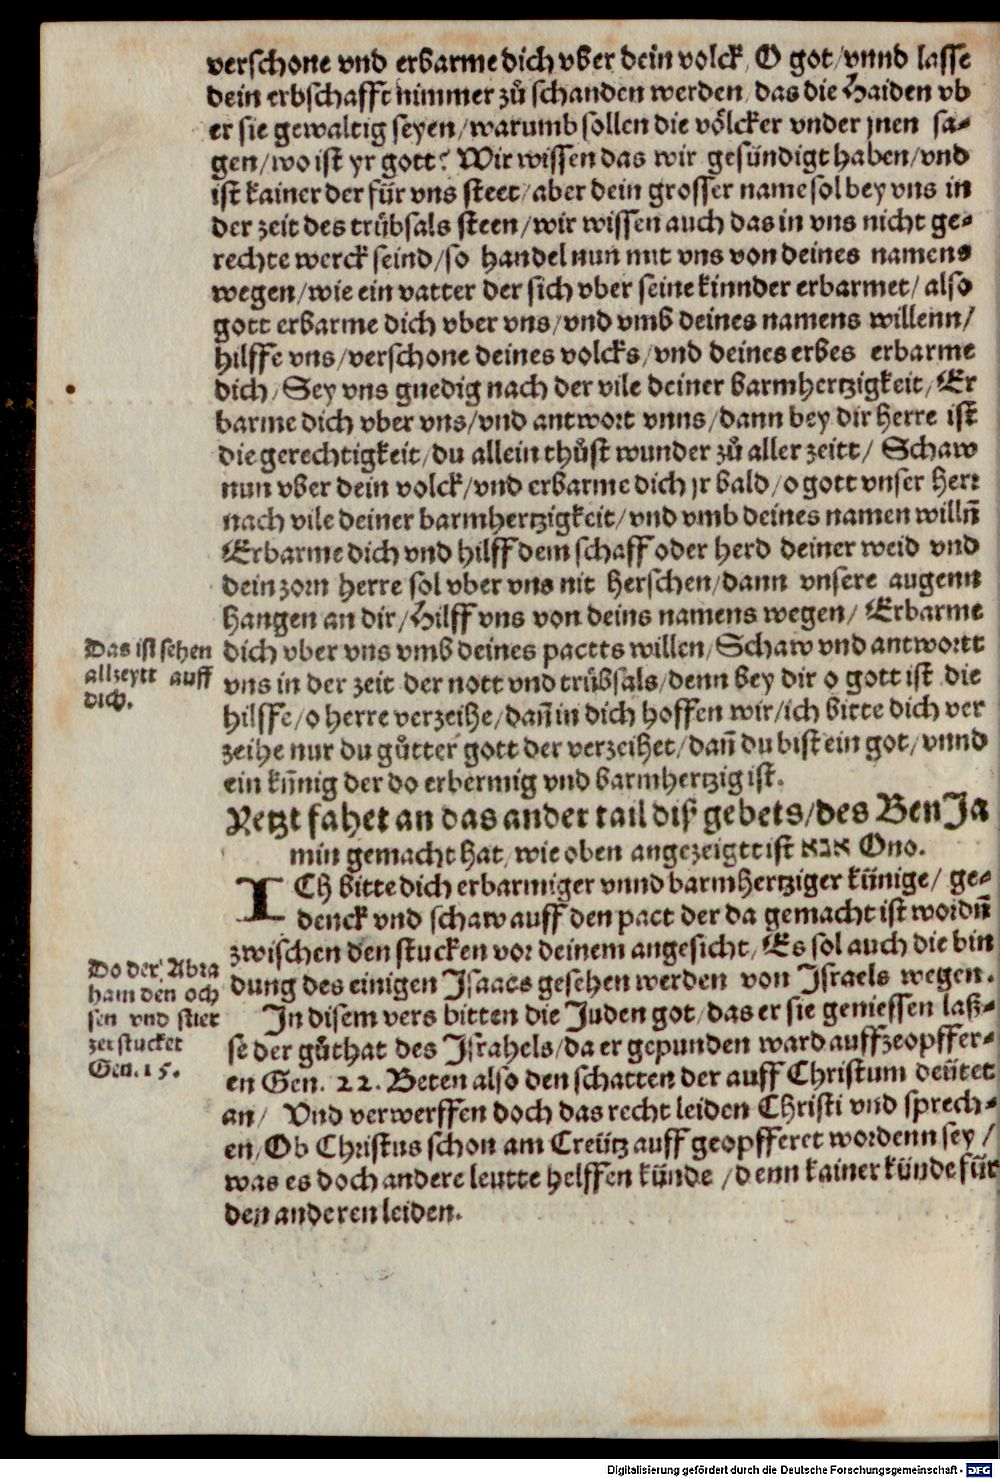 verschone vnd erbarme dich vber dein volck, O got/vnnd lasse
dein erbschafft nimmer zů schanden werden, das die Haiden vb
er sie gewaltig seyen/warumb sollen die vȯlcker vnder jnen sa-
gen/wo ist yr gott? Wir wissen das wir gesündigt haben/vnd
ist kainer der für vns steet/aber dein grosser name sol bey vns in
der zeit des trübsals steen/wir wissen auch das in vns nicht ge-
rechte werck seind/so handel nun mit vns von deines namens
wegen/wie ein vatter der sich vber seine kinnder erbarmet/also
gott erbarme dich vber vns/vnd vmb deines namens willenn/
hilffe vns/verschone deines volcks/vnd deines erbes erbarme
dich/Sey vns gnedig nach der vile deiner barmhertzigkeit/Er
barme dich vber vns/vnd antwort vnns/dann bey dir herre ist
die gerechtigkeit/du allein thůst wunder zů aller zeitt/ Schaw
nun vber dein volck/vnd erbarme dich jr bald/o gott vnser herr
nach vile deiner barmhertzigkeit/vnd vmb deines namen willñ
Erbarme dich vnd hilff dem schaff oder herd deiner weid vnd
dein zorn herre sol vber vns nit herschen/dann vnsere augenn
hangen an dir/Hilff vns von deins namens wegen/ Erbarme
Das ist sehen
allzeytt auff
dich.
dich vber vns vmb deines pactts willen/Schaw vnd antwortt
vns in der zeit der nott vnd trübsals/denn bey dir o gott ist die
hilffe/o herre verzeihe/dañ in dich hoffen wir/ich bitte dich ver
zeihe nur du gůtter gott der verzeihet/dañ du bist ein got/vnnd
ein künig der do erbermig vnd barmhertzig ist.
Yetzt fahet an das ander tail diß gebets/des Ben Ja
min gemacht hat, wie oben angezeigtt ist אנא Ono.
ICh bitte dich erbarmiger vnnd barmhertziger künige/ ge-
denck vnd schaw auff den pact der da gemacht ist wordñ
zwischen den stucken vor deinem angesicht/Es sol auch die bin
dung des einigen Isaacs gesehen werden von Israels wegen.
Do der Abra
ham den och
sen vnd stier
zerstucket
Gen.15.
In disem vers bitten die Juden got/das er sie geniessen laß-
se der gůthat des Israhels/da er gepunden ward auffzeopffer-
en Gen. 22. Beten also den schatten der auff Christum deütet
an/ Vnd verwerffen doch das recht leiden Christi vnd sprech-
en/Ob Christus schon am Creütz auff geopfferet wordenn sey/
was es doch andere leutte helffen künde/denn kainer künde für
den anderen leiden.
Digitalisierung gefördert durch die Deutsche Forschungsgemeinschaft - DFG